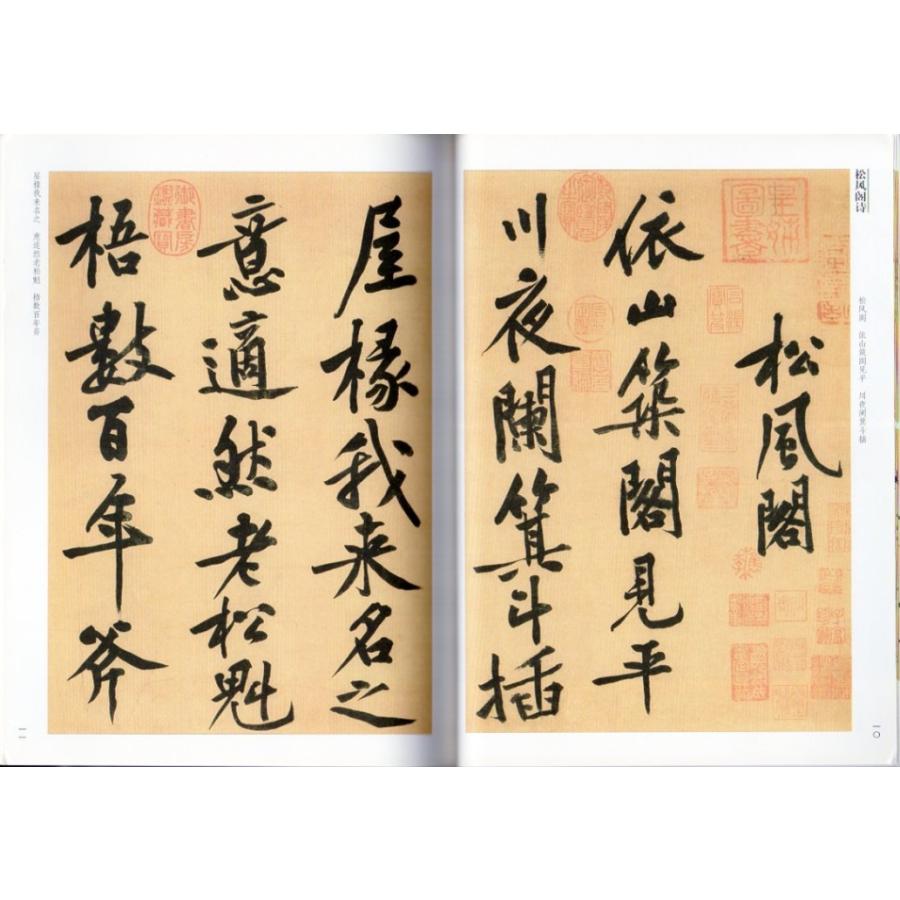 松风阁诗
松风阁 依山筑阁见平 川夜阑箕斗插
一〇
松風閣
皇姊圖書
依山築閣見平
川夜闌箕斗插
屋椽我来名之
意適然老松魁
御書房鑑藏寶
梧數百年斧
屋椽我来名之 意适然老松魁 梧数百年斧
一一